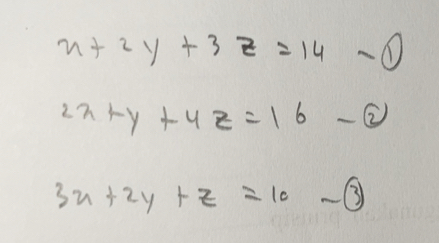 x + 2y + 3z = 14 - ①
2x + y + 4z = 16 - ②
3x + 2y + z = 10 - ③